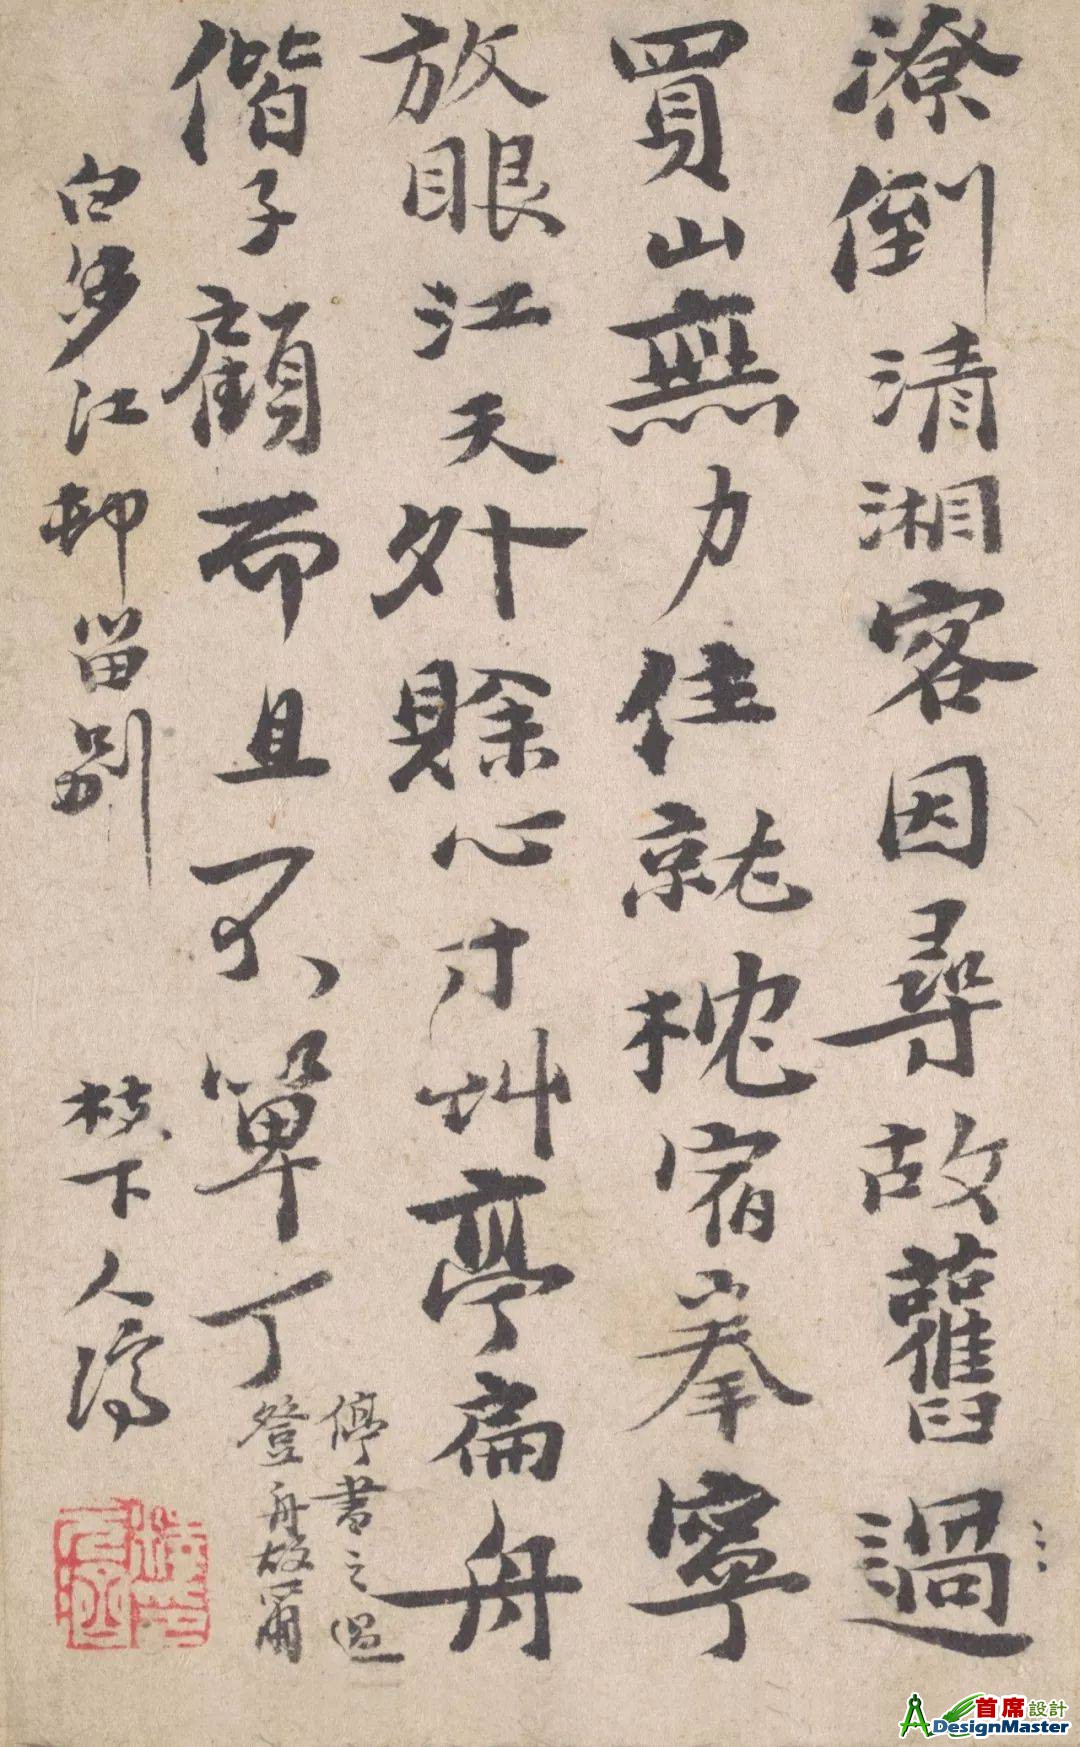 潦倒清湘客因尋故舊過
買山無力住就枕宿拳寧
放眼江天外賒心寸艸亭扁舟
偕子顧而且不單丁
停書之過
登舟故爾
白沙江邨留別 枝下人濟
首席設計
ADesignMaster